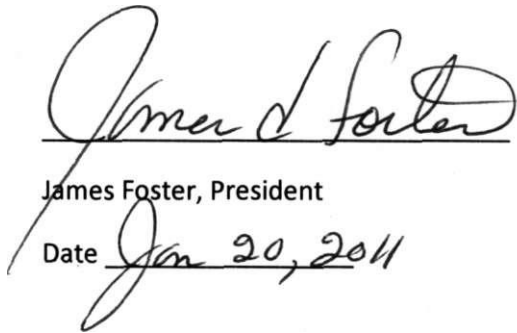 James d Foster
James Foster, President
Date Jan 20, 2011